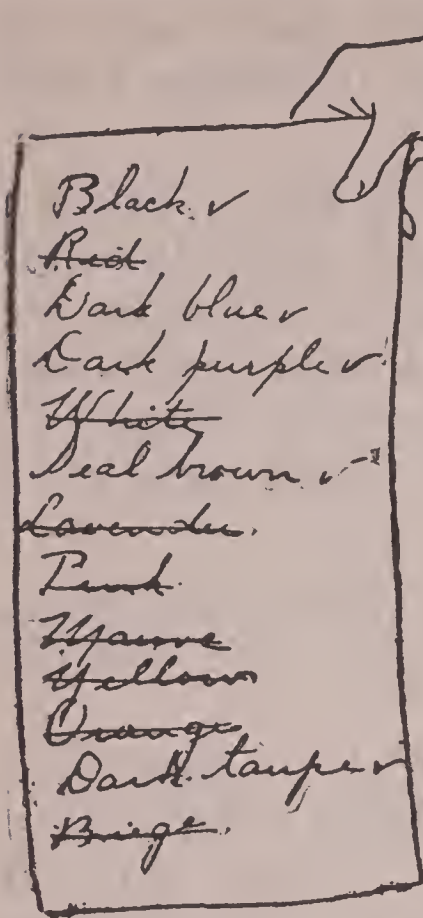 Black. ✓
Red
Dark blue ✓
Dark purple ✓
White
Seal brown ✓
Lavender.
Pink.
Mauve
Yellow
Orange
Dark taupe ✓
Biege.